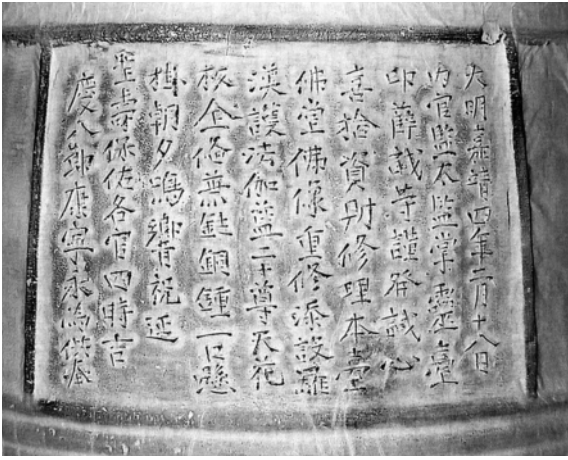 大明嘉靖四年二月十八日
内官監太監掌靈臺
印薛誠等謹發誠心
喜捨資財修理本臺
佛堂佛像重修添設羅
漢護法伽藍二十尊天花
板全俻無缺銅鍾一口懸
掛朝夕鳴響祝延
聖壽保佑各官四時吉
慶八節康寧永為